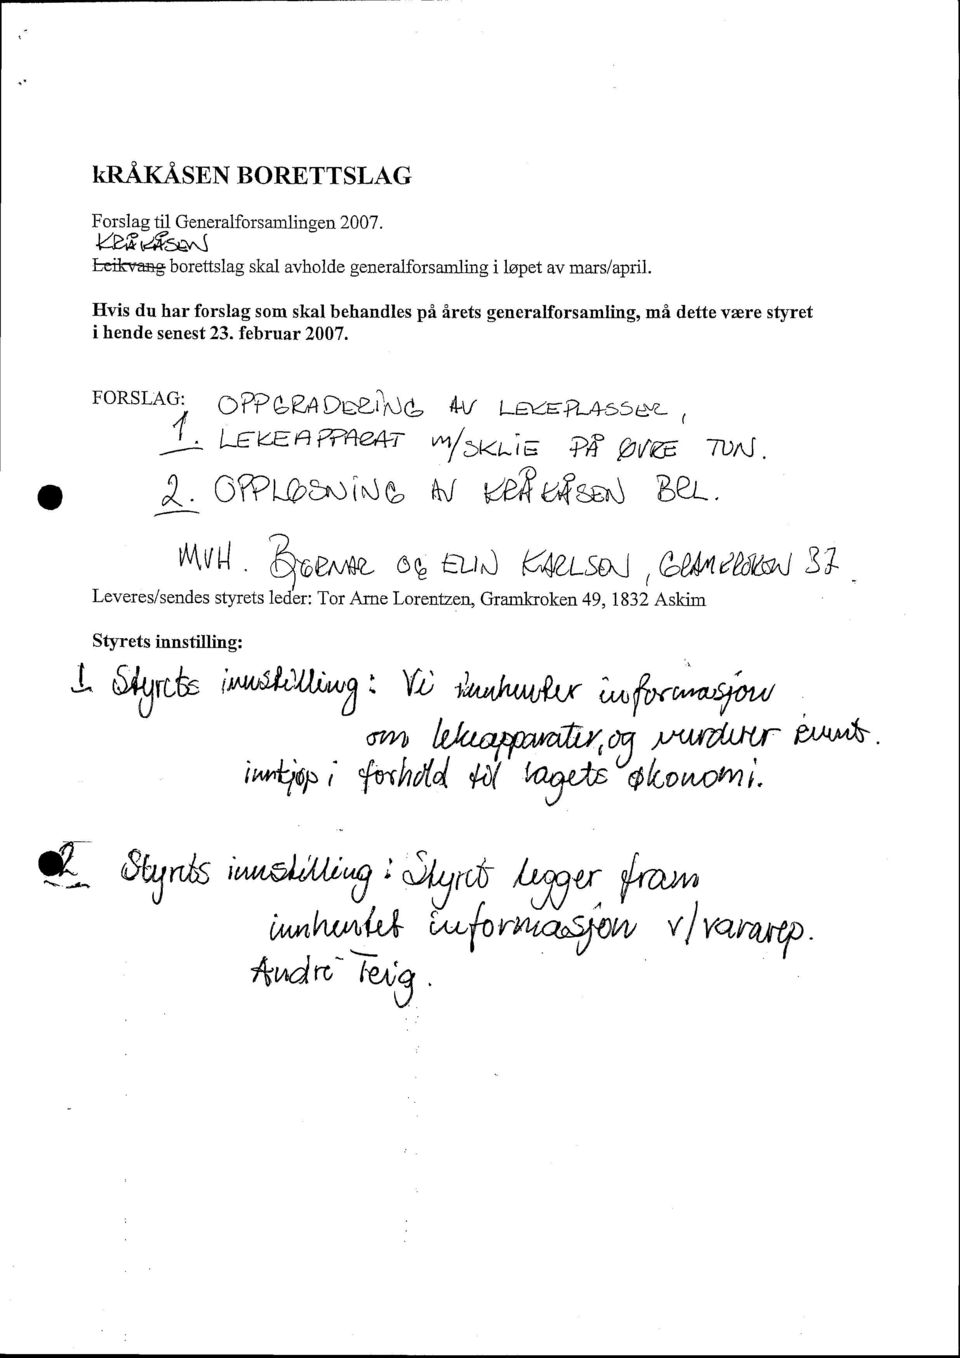 kRÅKÅSEN BORETTSLAG
Forslag til Generalforsamlingen 2007.
KRÅKÅSEN
Leikvang borettslag skal avholde generalforsamling i løpet av mars/april.
Hvis du har forslag som skal behandles på årets generalforsamling, må dette være styret
i hende senest 23. februar 2007.
FORSLAG: OPPGRADERING AV LEKEPLASSER,
1. LEKEAPPARAT M/SKLIE PÅ ØVRE TUN.
2. OPPLØSNING AV KRÅKÅSEN BRL.
MVH. BJØRNAR OG ELIN KARLSEN, GRAMKROKEN 37
Leveres/sendes styrets leder: Tor Arne Lorentzen, Gramkroken 49, 1832 Askim
Styrets innstilling:
1. Styrets innstilling: Vi innhenter informasjon
om lekeapparater, og vurderer event.
innkjøp i forhold til lagets økonomi.
2. Styrets innstilling: Styret legger fram
innhentet informasjon v/vararep.
Andre Teig.